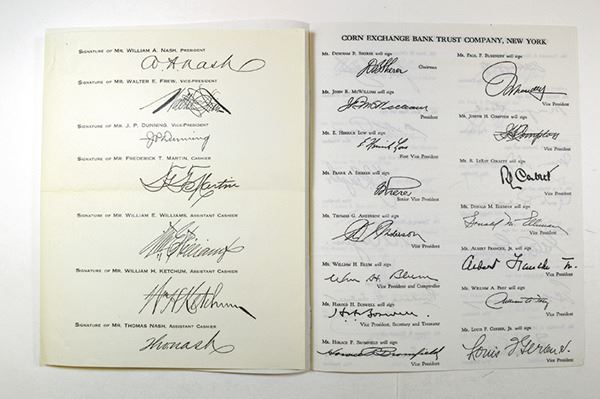 Signature of Mr. William A. Nash, President
W A Nash
Signature of Mr. Walter E. Frew, Vice-President
Signature of Mr. J. P. Dunning, Vice-President
J P Dunning
Signature of Mr. Frederick T. Martin, Cashier
F T Martin
Signature of Mr. William E. Williams, Assistant Cashier
Wm E Williams
Signature of Mr. William H. Ketchum, Assistant Cashier
Wm H Ketchum
Signature of Mr. Thomas Nash, Assistant Cashier
Tho Nash
CORN EXCHANGE BANK TRUST COMPANY, NEW YORK
Mr. Dunham B. Sherer will sign
D B Sherer
Chairman
Mr. John R. McWilliam will sign
President
Mr. E. Herrick Low will sign
E Herrick Low
First Vice President
Mr. Frank A. will sign
Senior Vice President
Mr. Thomas G. Anderson will sign
Anderson
Vice President
Mr. William H. Blum will sign
Wm H. Blum
Vice President and Comptroller
Mr. Harold H. will sign
Vice President, Secretary and Treasurer
Mr. Horace F. Bromfield will sign
Horace F Bromfield
Vice President
Mr. Paul F. will sign
Vice President
Mr. Joseph H. Compton will sign
Compton
Vice President
Mr. R. LeRoy will sign
Vice President
Mr. Donald M. Elliman will sign
Donald M. Elliman
Vice President
Mr. Albert Francke, Jr. will sign
Albert Francke Jr.
Vice President
Mr. William A. will sign
Vice President
Mr. Louis F. Jr. will sign
Louis F
Vice President